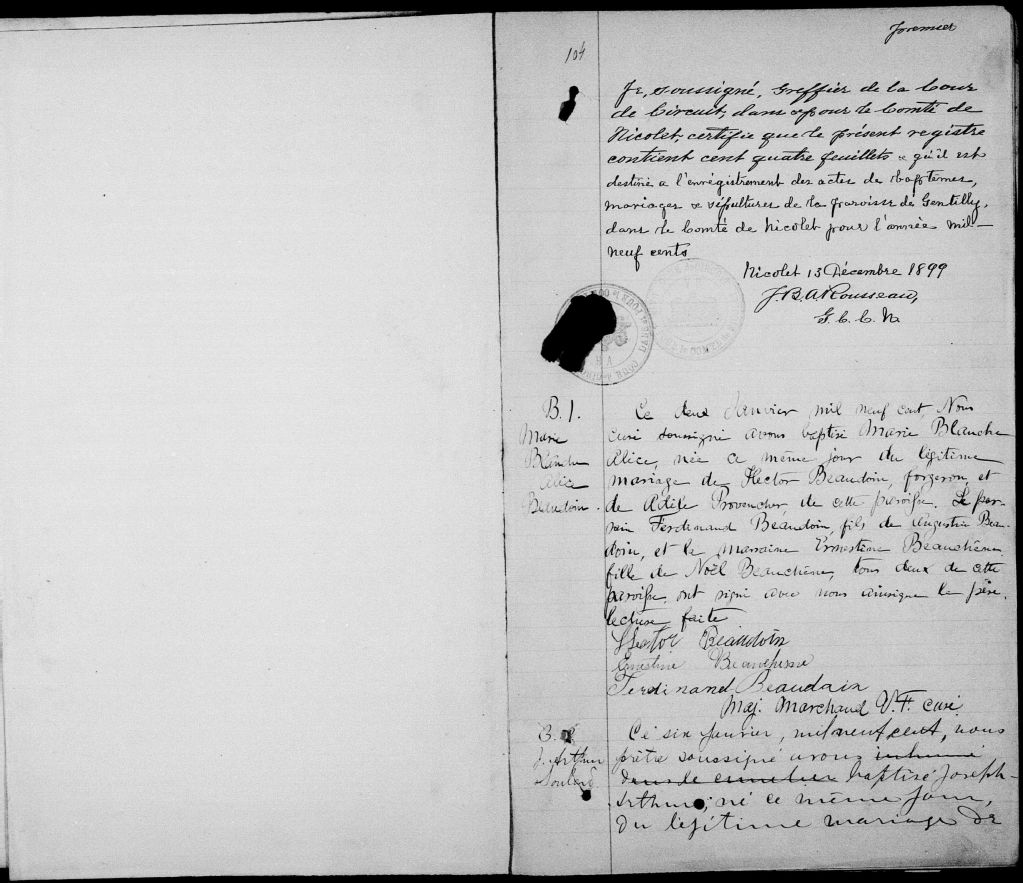 premier
104
Je, soussigné, Greffier de la Cour
de Circuit, dans & pour le Comté de
Nicolet, certifie que le présent registre
contient cent quatre feuillets & qu'il est
destiné a l'enrégistrement des actes de baptêmes,
mariages & sépultures de la paroisse de Gentilly,
dans le Comté de Nicolet pour l'année mil-
neuf cents
Nicolet 13 Décembre 1899
J. B. A. Rousseau,
G. C. C. N.
B. 1.
Marie
Blanche
Alice
Beaudoin.
Ce deux Janvier mil neuf cent, Nous
curé soussigné avons baptisé Marie Blanche
Alice, née ce même jour du légitime
mariage de Hector Beaudoin, forgeron, et
de Adèle Provencher, de cette paroisse. Le par-
rain Ferdinand Beaudoin, fils de Augustin Beau-
doin, et la marraine Ernestine Beauchêne
fille de Noël Beauchêne, tous deux de cette
paroisse, ont signé avec nous ainsique le père.
lecture faite
Hector Beaudoin
Ernestine Beauchesne
Ferdinand Beaudoin
Maj. Marchand V. F. curé
B. 2
J. Arthur
Ce six Janvier, mil neuf cent, nous
prêtre soussigné avons inhumé
dans le cimetière baptisé Joseph-
Arthur, né ce même jour,
du légitime mariage de